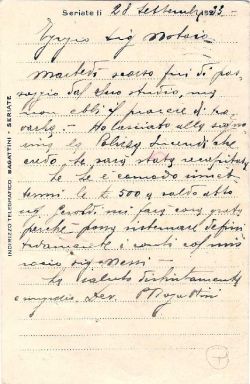 Seriate li 28 Settembre 1933
Egregio Sig Notaio
Martedì scorso fui di pas-
saggio dal Suo studio, ma
non ebbi il piacere di tro-
varla. Ho lasciato alla signo-
rina la Polizza Incendi che
credo le sarà stata recapitata
Se le è comodo rimet-
termi le £ 500 a saldo
sig. mi farà cosa grata
perché posso sistemare defini-
tivamente i conti col mio
socio sig.
La saluto distintamente
INDIRIZZO TELEGRAFICO BAGATTINI - SERIATE